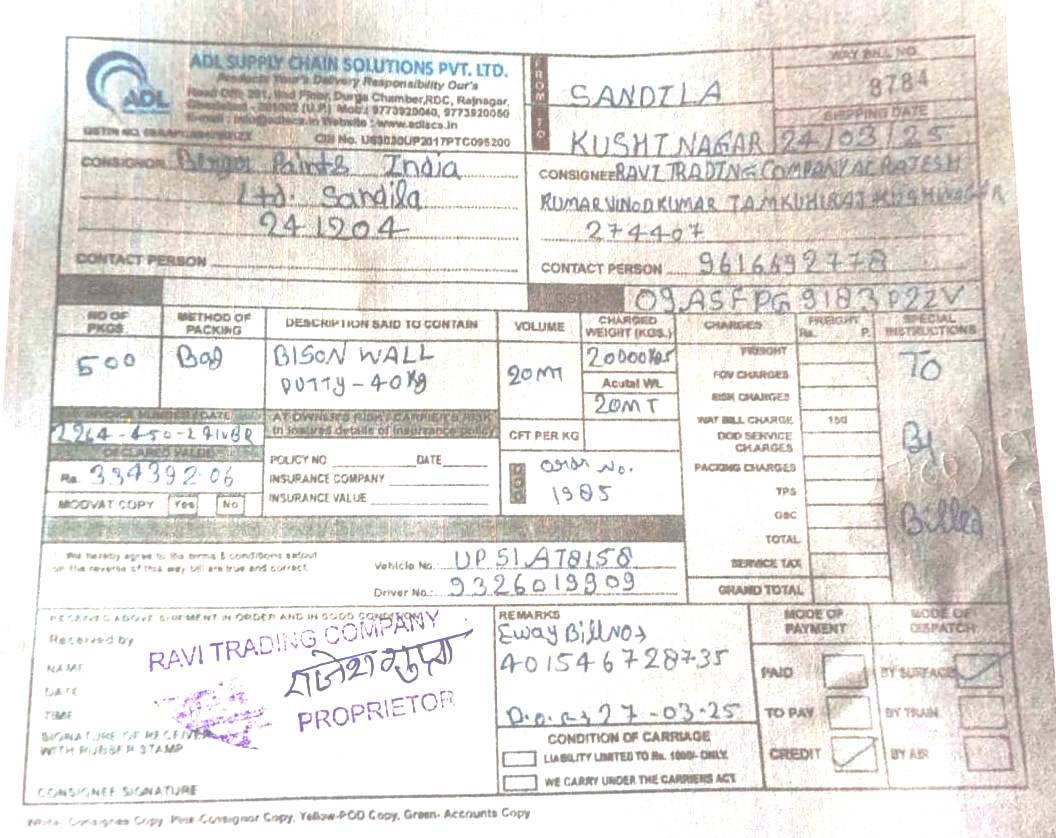 ADL SUPPLY CHAIN SOLUTIONS PVT. LTD.
Products Your's Delivery Responsibility Our's
Durga Chamber, RDC, Rajnagar,
201002 (U.P.) Mob.: 9773920040, 9773920050
Website : www.adlscs.in
ADL
GSTIN NO.
CIN No. U63030UP2017PTC095200
FROM
SANDILA
TO
KUSHI NAGAR
WAY BILL NO.
8784
SHIPPING DATE
24/03/25
CONSIGNOR Berger Paints India
Ltd. Sandila
241204
CONTACT PERSON
CONSIGNEE RAVI TRADING COMPANY AC RAJESH
KUMAR VINOD KUMAR TAMKUHIRAJ KUSHINAGAR
274407
CONTACT PERSON 9616692778
09ASFPG9183P22V
NO OF PKGS
METHOD OF PACKING
DESCRIPTION SAID TO CONTAIN
VOLUME
CHARGED WEIGHT (KGS.)
CHARGES
FREIGHT
Rs. P.
SPECIAL INSTRUCTIONS
500
Bag
BISON WALL
PUTTY-40Kg
20MT
20000Kgs
Acutal Wt.
20MT
CFT PER KG
FREIGHT
FOV CHARGES
RISK CHARGES
WAY BILL CHARGE 150
DOD SERVICE CHARGES
PACKING CHARGES
TPS
GSC
TOTAL
SERVICE TAX
GRAND TOTAL
To
By
Billed
INVOICE NUMBER / DATE
DECLARED VALUE
Rs. 334392.06
MODVAT COPY Yes No
AT OWNER'S RISK / CARRIER'S RISK
POLICY NO DATE
INSURANCE COMPANY
INSURANCE VALUE
No.
1985
We hereby agree to the terms & conditions setout
on the reverse of this way bill are true and correct.
Vehicle No. UP51AT8158
Driver No.: 9326019909
RECEIVED ABOVE SHIPMENT IN ORDER AND IN GOOD CONDITION
Received by
NAME
DATE
TIME
SIGNATURE OF RECEIVER
WITH RUBBER STAMP
CONSIGNEE SIGNATURE
RAVI TRADING COMPANY
PROPRIETOR
REMARKS
Eway Bill No
401546728735
27-03-25
CONDITION OF CARRIAGE
LIABILITY LIMITED TO Rs. 1000/- ONLY.
WE CARRY UNDER THE CARRIERS ACT
MODE OF PAYMENT
PAID
TO PAY
CREDIT
MODE OF DISPATCH
BY SURFACE
BY TRAIN
BY AIR
White- Consignee Copy, Pink-Consignor Copy, Yellow-POD Copy, Green- Accounts Copy